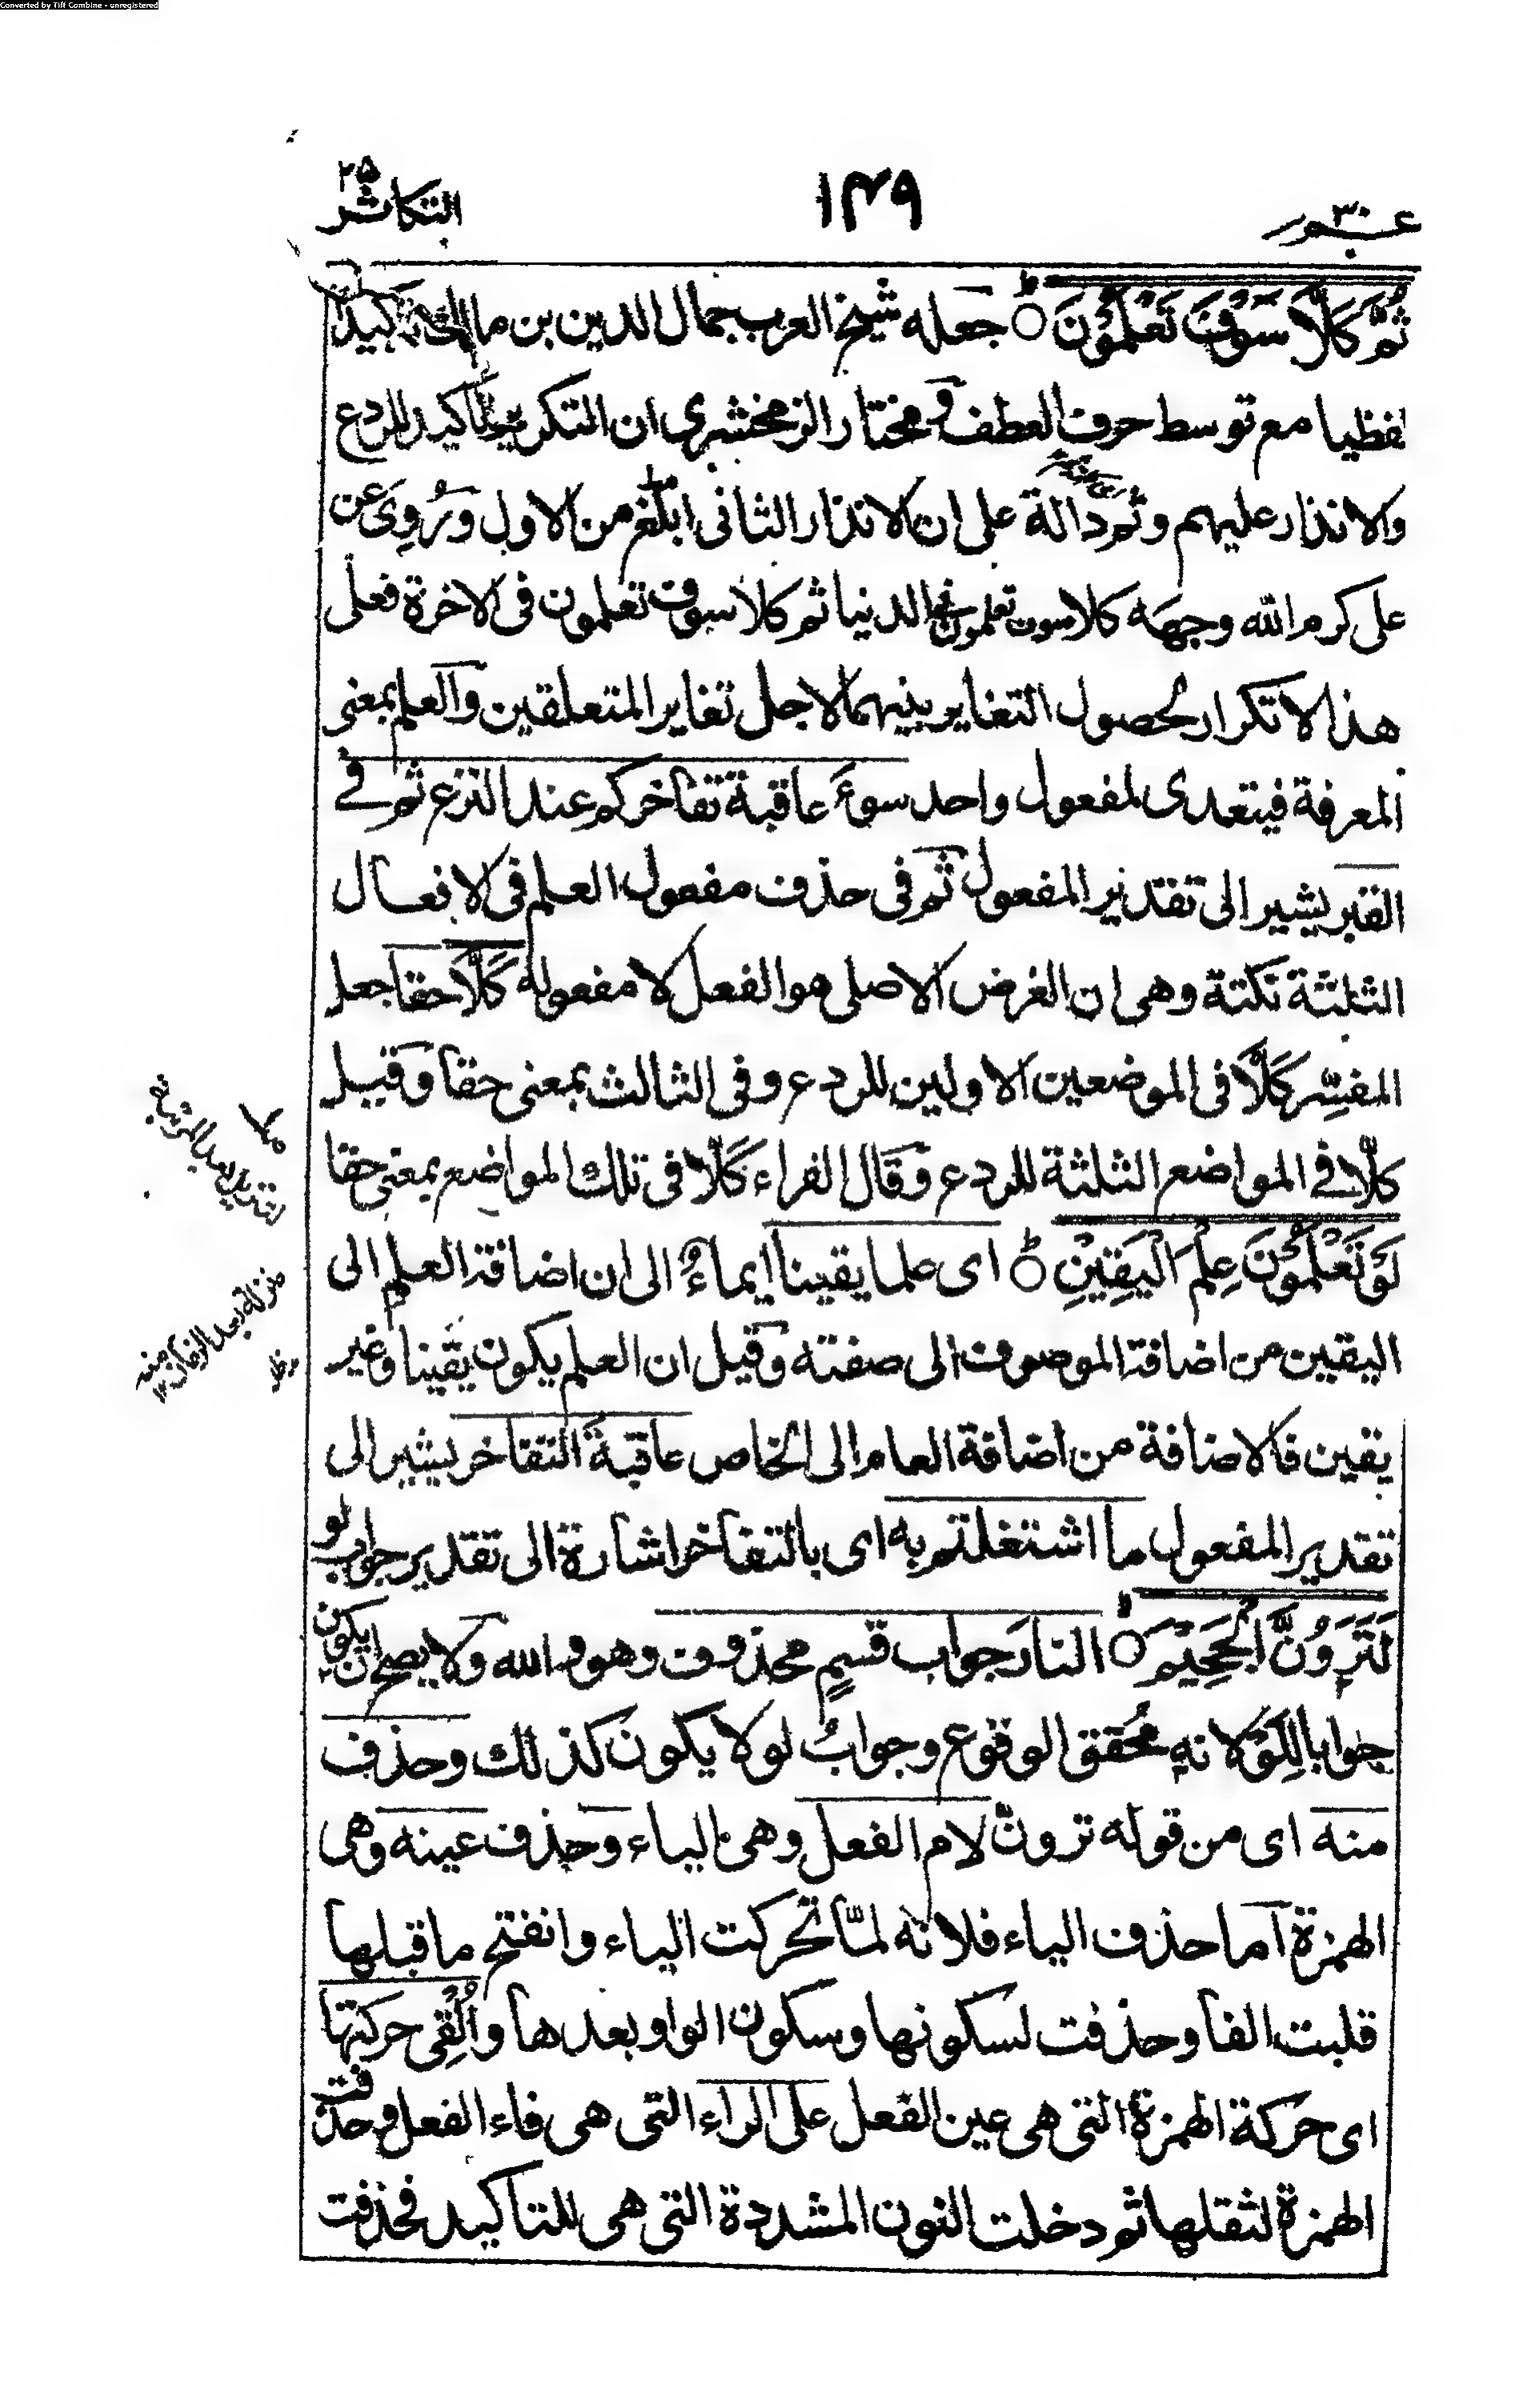 Converted by Tiff Combine - unregistered
عم ٣٠
١٤٩
التكاثر
٢٥
ثُمَّ كَلَّا سَوْفَ تَعْلَمُوْنَ ○ جعله شيخ العرب جمال الدين بن مالك تاكيدا
لفظيا مع توسط حرف العطف ومختار الزمخشرى ان التكرير تاكيد للردع
والانذار عليهم وثم دالة على ان الانذار الثانى ابلغ من الاول ورُوِىَ عن
على كرم الله وجهه كلا سوف تعلمون فى الدنيا ثم كلا سوف تعلمون فى الاخرة فعلى
هذا لا تكرار لحصول التغاير بينهما لاجل تغاير المتعلقين والعلم بمعنى
المعرفة فيتعدى لمفعول واحد سوءَ عاقبة تفاخركم عند النزع ثم فى
القبر يشير الى تقدير المفعول ثم فى حذف مفعول العلم فى الافعال
الثلثة نكتة وهى ان الغرض الاصلى هو الفعل لا مفعوله كَلَّا حقا جعل
المفسّر كَلَّا فى الموضعين الاولين للردع وفى الثالث بمعنى حقا وقيل
كلّا فى المواضع الثلثة للردع وقال الفراء كَلَّا فى تلك المواضع بمعنى حقا
لَوْ تَعْلَمُوْنَ عِلْمَ الْيَقِيْنِ ○ اى علما يقينا ايماءٌ الى ان اضافة العلم الى
اليقين من اضافة الموصوف الى صفته وقيل ان العلم يكون يقينا وغير
يقين فالاضافة من اضافة العام الى الخاص عاقبةَ التفاخر يشير الى
تقدير المفعول ما اشتغلتم به اى بالتفاخر اشارة الى تقدير جواب لو
لَتَرَوُنَّ الْجَحِيْمَ ○ النارَ جواب قسمٍ محذوف وهو والله ولا يصح ان يكون
جوابا لِلَوْ لانه مُحقق الوقوع وجوابُ لو لا يكون كذلك وحذف
منه اى من قوله ترونّ لام الفعل وهى الياء وحذف عينه وهى
الهمزة اما حذف الياء فلانه لمّا تحركت الياء وانفتح ما قبلها
قلبت الفا وحذفت لسكونها وسكون الواو بعدها واُلْقِىَ حركتها
اى حركة الهمزة التى هى عين الفعل على الراء التى هى فاء الفعل وحذفت
الهمزة لثقلها ثم دخلت النون المشددة التى هى للتاكيد فحذفت